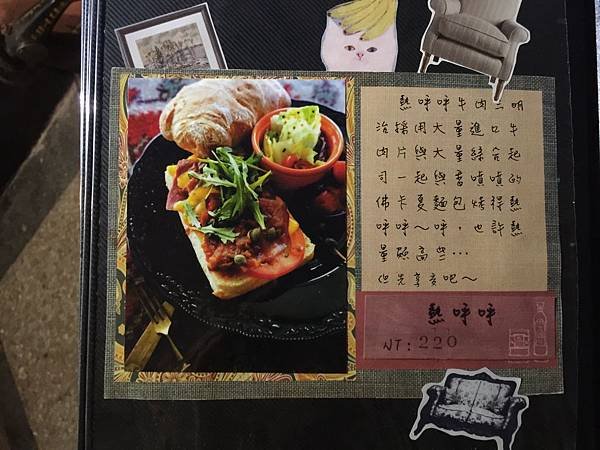 熱呼呼牛肉三明
治採用大量進口牛
肉片與大量綜合起
司一起與香噴噴的
佛卡夏麵包烤得熱
呼呼～呼，也許熱
量頗高些...
但先享受吧～
熱呼呼
NT：220